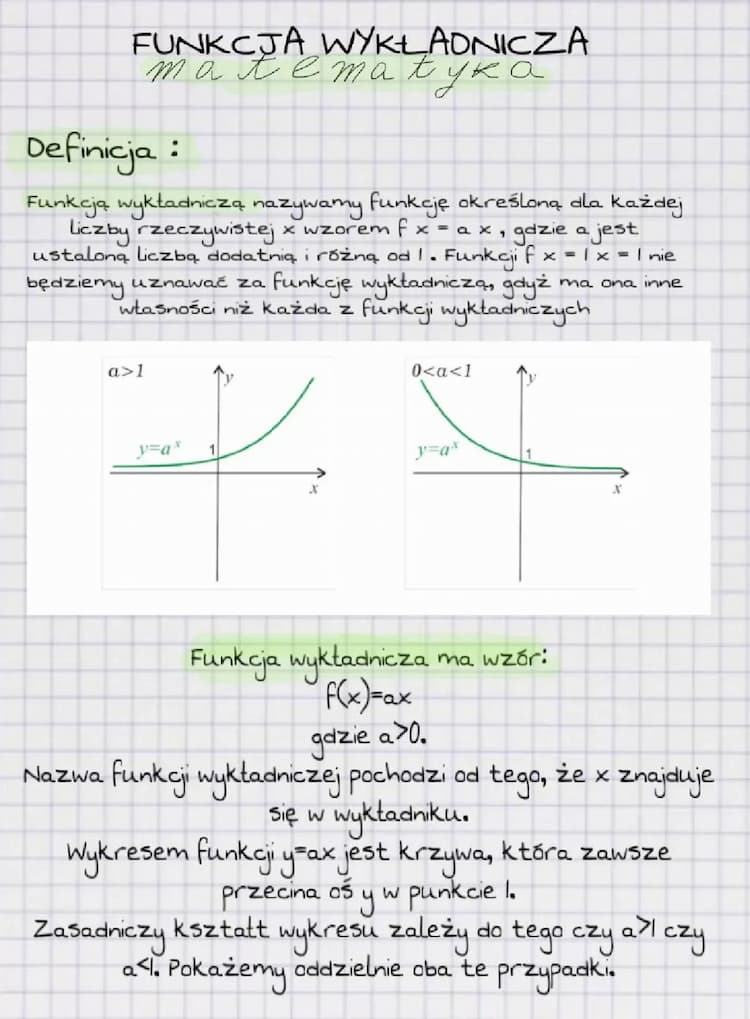 FUNKCJA WYKŁADNICZA
matematyka
Definicja :
Funkcją wykładniczą nazywamy funkcję określoną dla każdej
liczby rzeczywistej x wzorem f x = a x , gdzie a jest
ustaloną liczbą dodatnią i różną od 1 . Funkcji f x = 1 x = 1 nie
będziemy uznawać za funkcję wykładniczą, gdyż ma ona inne
własności niż każda z funkcji wykładniczych
a>1
y
y=aˣ
1
x
0<a<1
y
y=aˣ
1
x
Funkcja wykładnicza ma wzór:
f(x)=ax
gdzie a>0.
Nazwa funkcji wykładniczej pochodzi od tego, że x znajduje
się w wykładniku.
Wykresem funkcji y=ax jest krzywa, która zawsze
przecina oś y w punkcie 1.
Zasadniczy kształt wykresu zależy do tego czy a>1 czy
a<1. Pokażemy oddzielnie oba te przypadki.